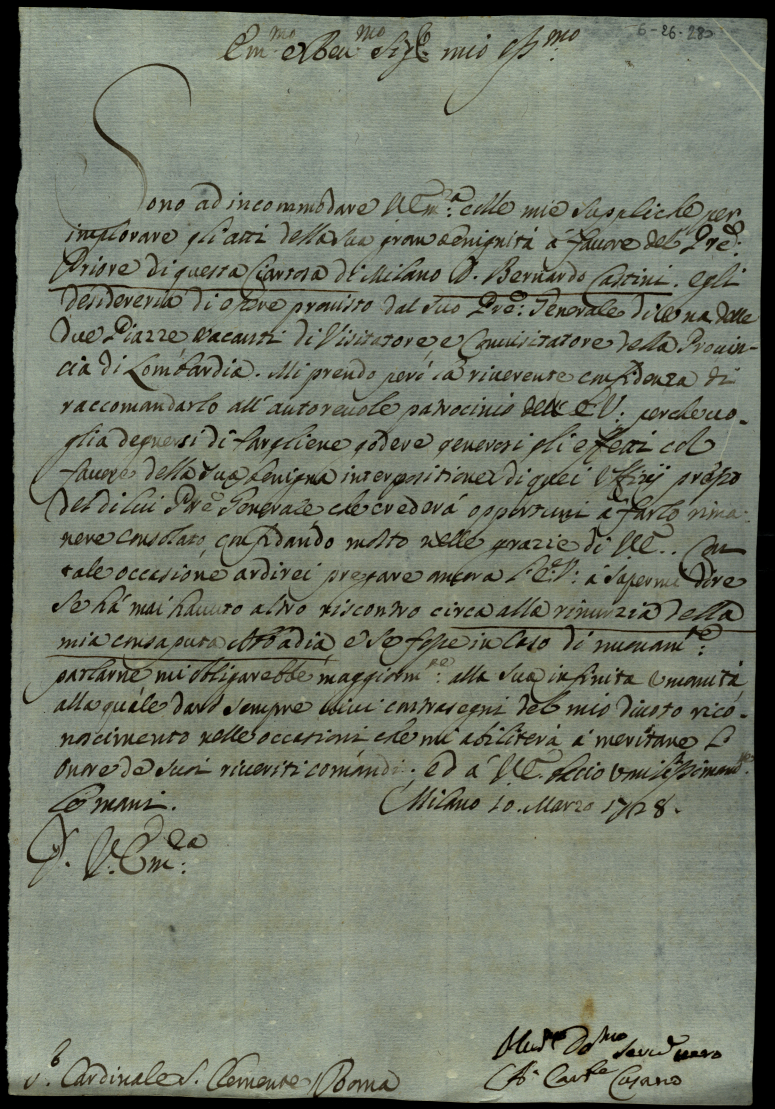 6-26-28
Em.mo e Reu.mo Sig.r mio Oss.mo
Sono ad incommodare V. Em.a colle mie suppliche per
implorare gli atti della sua gran benignità à fauore del Pre:
Priore di questa Certosa di Milano D. Bernardo Castini. egli
desidereria di essere prouisto dal suo Pre: Generale di una delle
due Piazze vacanti di Visitatore e Conuisitatore della Prouin-
cia di Lombardia. Mi prendo però la riuerente confidenza di
raccomandarlo all'autoreuole patrocinio dell'E.V. perche uo-
glia degnarsi di fargliene godere generosi gli effetti col
fauore della sua benigna interpositione, di quei Uffizij presso
del di lui Pre Generale che crederà opportuni a farlo rima-
nere consolato, confidando molto nelle grazie di V.E.. Con
tale occasione ardirei pregare ancora l'E.V: a sapermi dire
se hà mai hauuto altro riscontro circa alla rinunzia della
mia consaputa Abbadia e se fosse in caso di nuouam.te:
parlarne mi obligarebbe maggiorm.te alla sua infinita umanità
alla quale darò sempre uiui contrasegni del mio diuoto rico-
noscimento nelle occasioni che mi abiliterà à meritare L'
onore de suoi riueriti comandi, ed à V.E. bacio umilissimam.te
le mani. Milano 10. Marzo 1728.
D. V. Em.za:
S.r Cardinale S. Clemente Roma
Seru.e uero